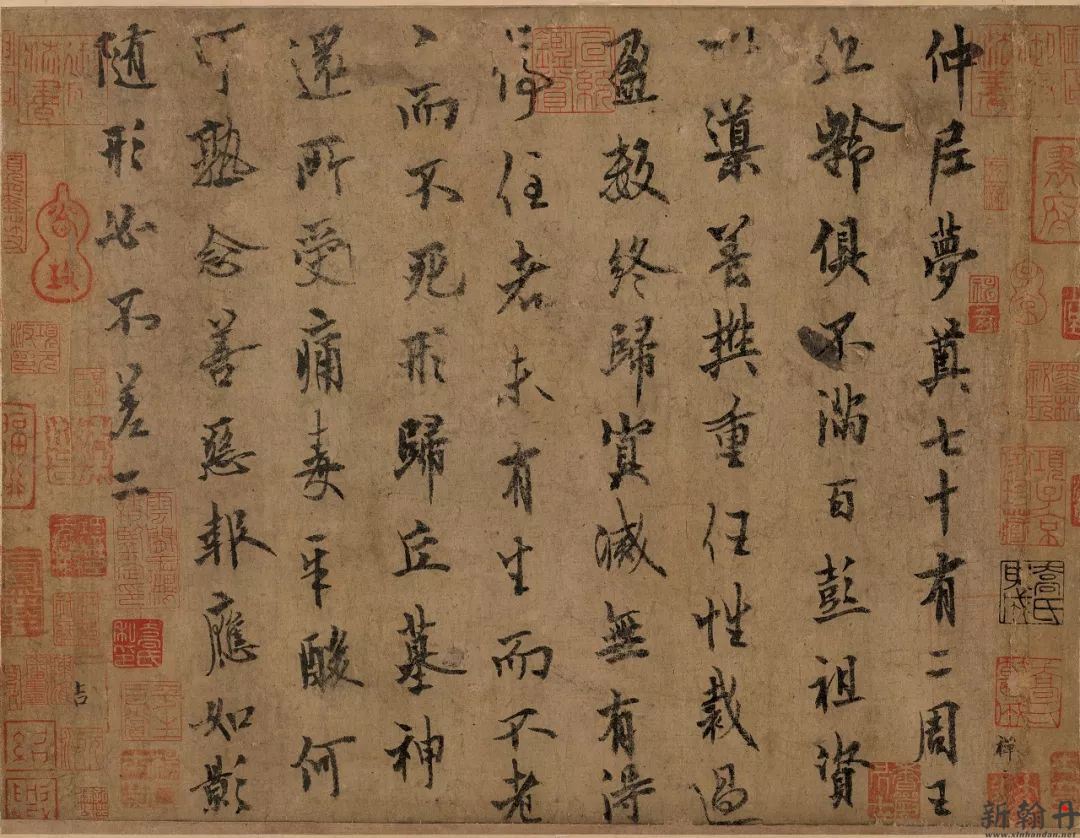 仲尼夢奠七十有二周王
九齡俱不滿百彭祖資
以導養樊重任性裁過
盈數終歸冥滅無有得
停住者未有生而不老
〻而不死形歸丘墓神
還所受痛毒辛酸何
可熟念善惡報應如影
隨形必不差二
新翰丹